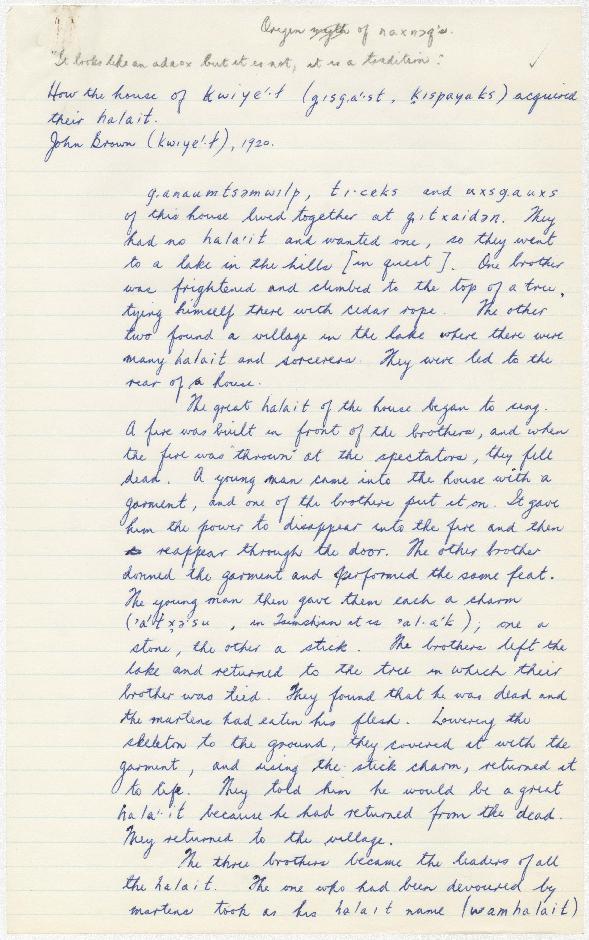 Origin myth of naxnɔq's.
"It looks like an adaox but it is not, it is a tradition".
✓
How the house of Kwiyɛ'·t (gɪsga'·st, Kispayaks) acquired
their halait.
John Brown (Kwiyɛ'·t), 1920.
ganaumtsəmwilp, tɪ·cɛks and axsgauxs
of this house lived together at gɪtxaidən. They
had no hala'·it and wanted one, so they went
to a lake in the hills [in quest]. One brother
was frightened and climbed to the top of a tree,
tying himself there with cedar rope. The other
two found a village in the lake where there were
many halait and sorcerers. They were led to the
rear of a house.
The great halait of the house began to sing.
A fire was built in front of the brothers, and when
the fire was "thrown" at the spectators, they fell
dead. A young man came into the house with a
garment, and one of the brothers put it on. It gave
him the power to disappear into the fire and then
reappear through the door. The other brother
donned the garment and performed the same feat.
The young man then gave them each a charm
('a'txə'su, in Tsimshian it is 'al·a'k); one a
stone, the other a stick. The brothers left the
lake and returned to the tree in which their
brother was tied. They found that he was dead and
the martens had eaten his flesh. Lowering the
skeleton to the ground, they covered it with the
garment, and using the stick charm, returned it
to life. They told him he would be a great
hala'·it because he had returned from the dead.
They returned to the village.
The three brothers became the leaders of all
the halait. The one who had been devoured by
martens took as his halait name (wamhalait)